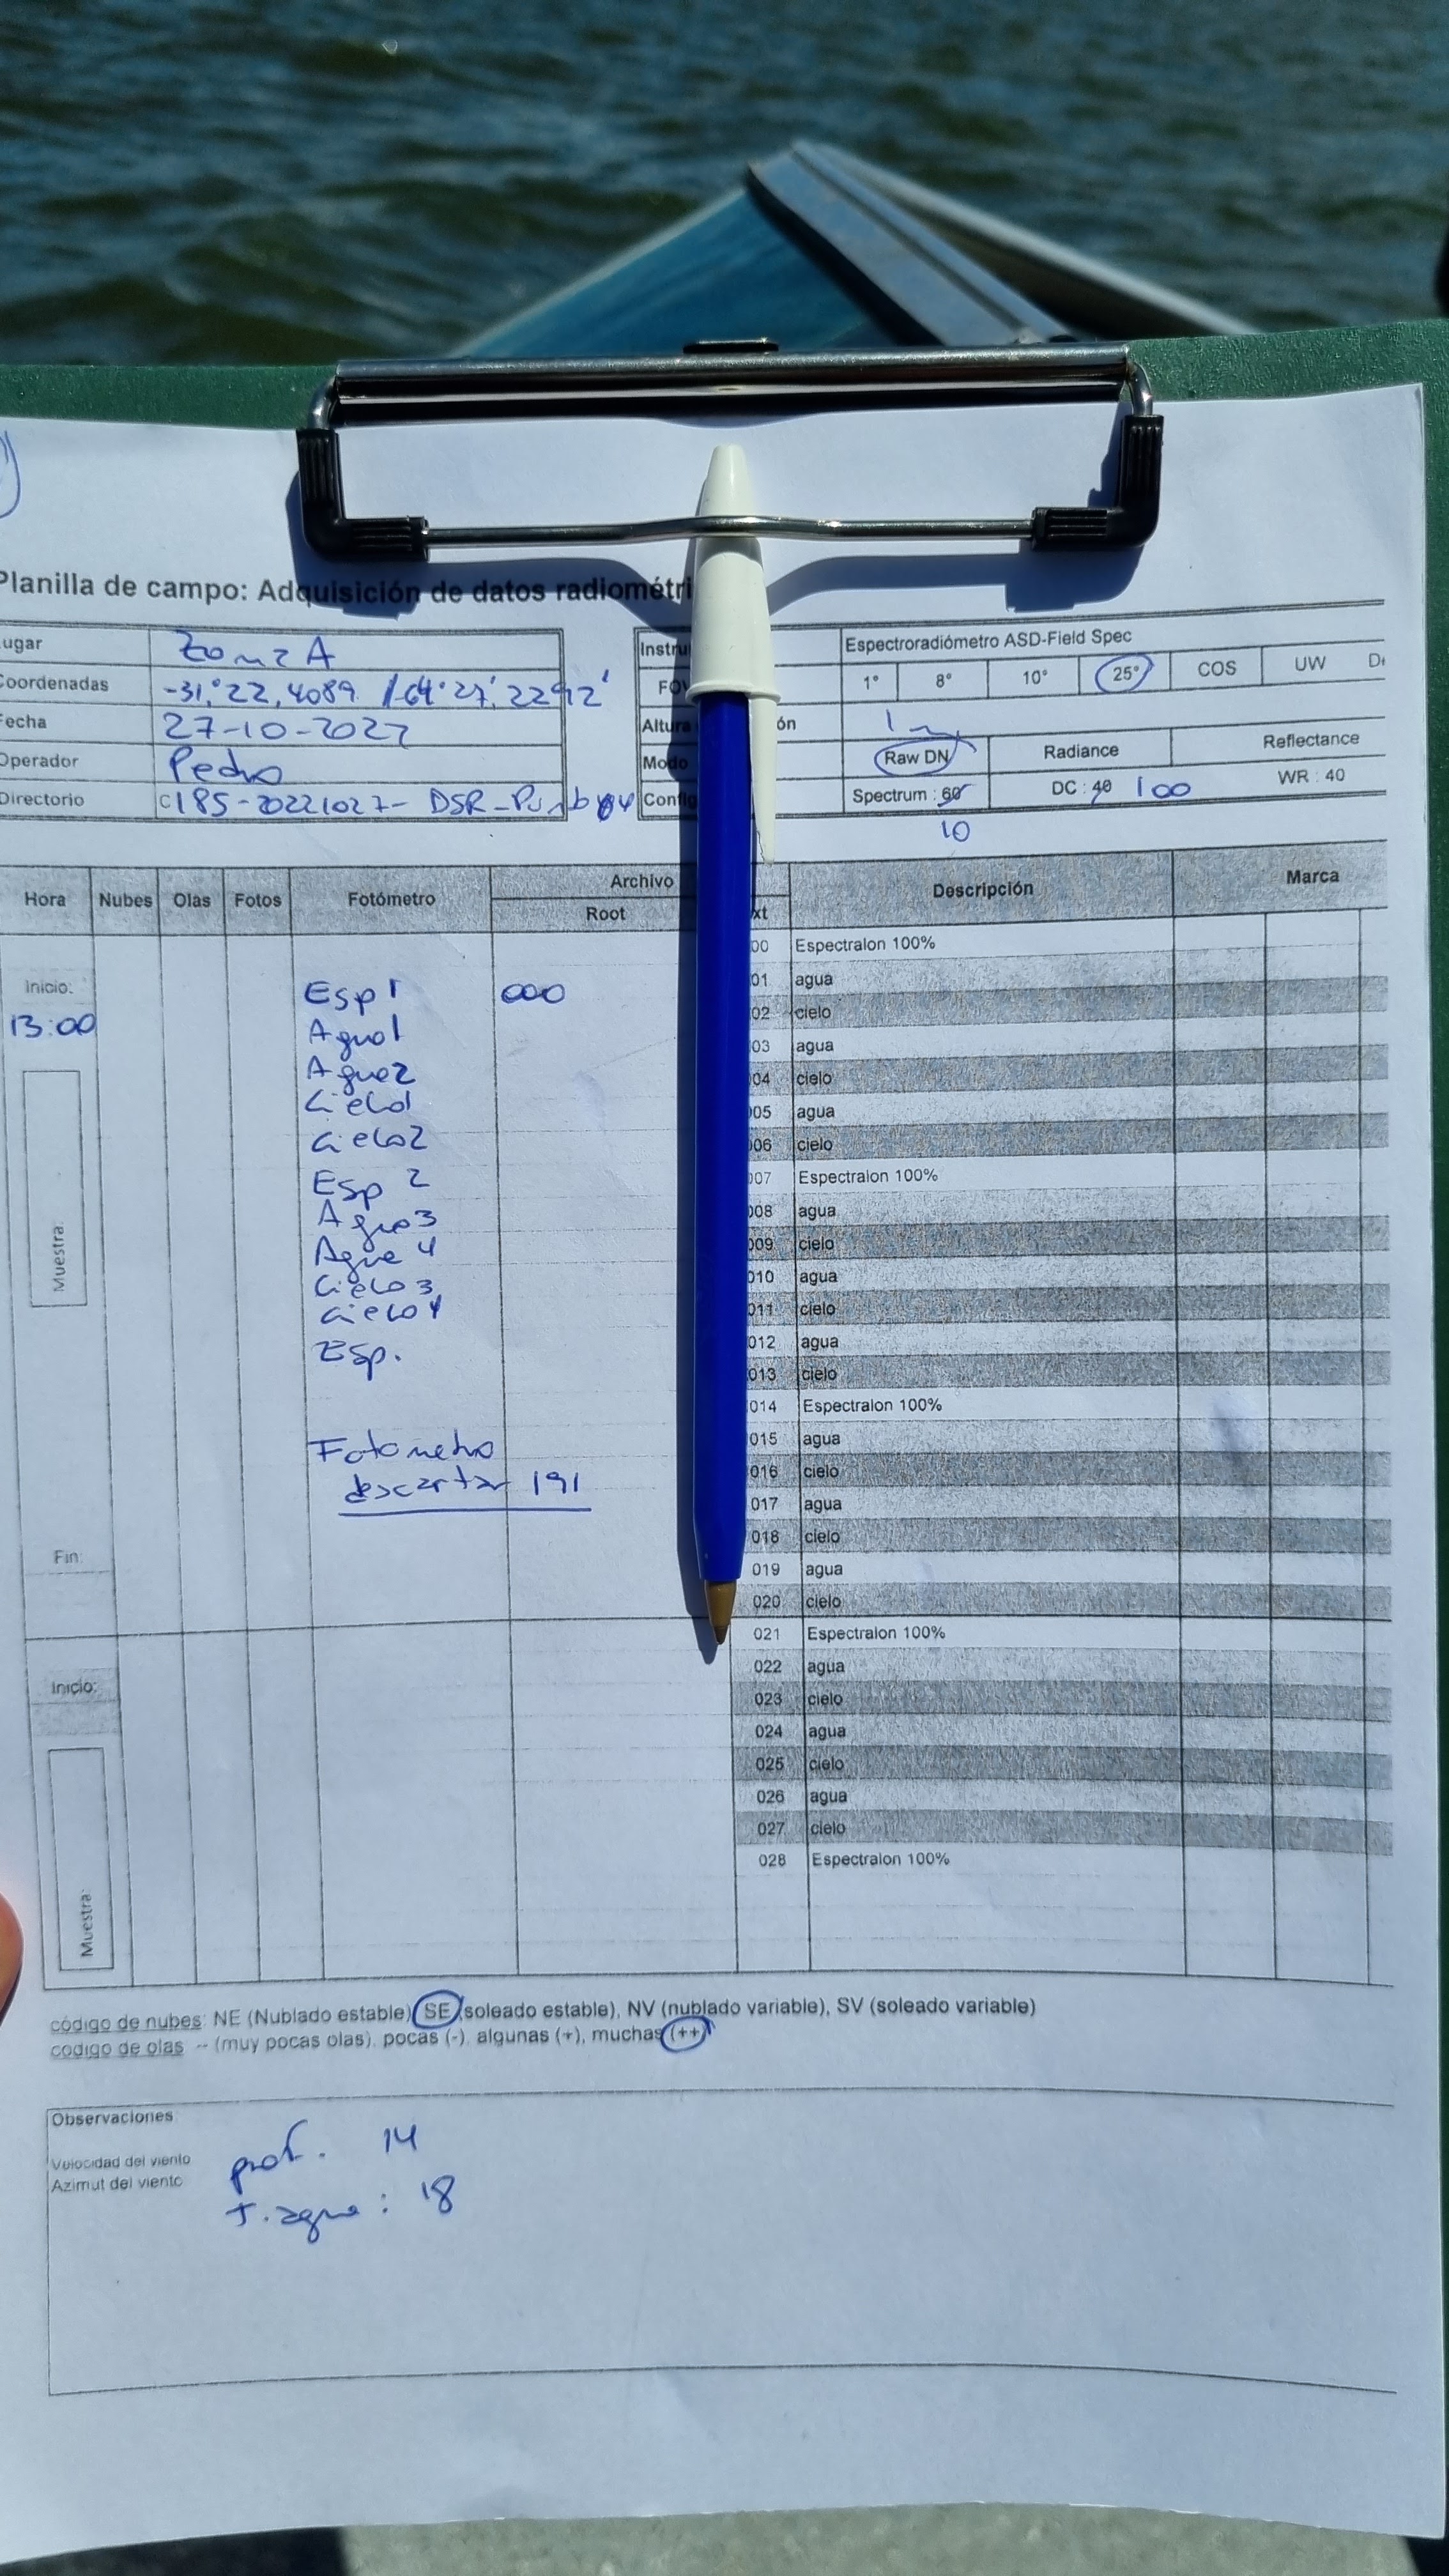 Planilla de campo: Adquisición de datos radiométri
ugar Zona A
Coordenadas -31°22,4089 /-64°27,2292'
Fecha 27-10-2022
Operador Pedro
Directorio c185-20221027- DSR-
Instru
Espectroradiómetro ASD-Field Spec
FO
1° 8° 10° 25° COS UW
Altura ón 1 m
Modo Raw DN Radiance Reflectance
Config Spectrum : 60 DC : 40 100 WR : 40
10
Hora Nubes Olas Fotos Fotómetro Archivo Descripción Marca
Root xt
Inicio:
13:00
Muestra:
Fin:
Esp 1 000
Agua1
Agua2
Cielo1
Cielo2
Esp 2
Agua3
Agua 4
Cielo3
Cielo4
Esp.
Fotometro
descartar 191
00 Espectralon 100%
01 agua
02 cielo
03 agua
04 cielo
05 agua
06 cielo
007 Espectralon 100%
008 agua
009 cielo
010 agua
011 cielo
012 agua
013 cielo
014 Espectralon 100%
015 agua
016 cielo
017 agua
018 cielo
019 agua
020 cielo
Inicio:
Muestra:
021 Espectralon 100%
022 agua
023 cielo
024 agua
025 cielo
026 agua
027 cielo
028 Espectralon 100%
código de nubes: NE (Nublado estable) SE (soleado estable), NV (nublado variable), SV (soleado variable)
codigo de olas -- (muy pocas olas), pocas (-), algunas (+), muchas (++)
Observaciones
Velocidad del viento
Azimut del viento
prof. 14
T. agua : 18